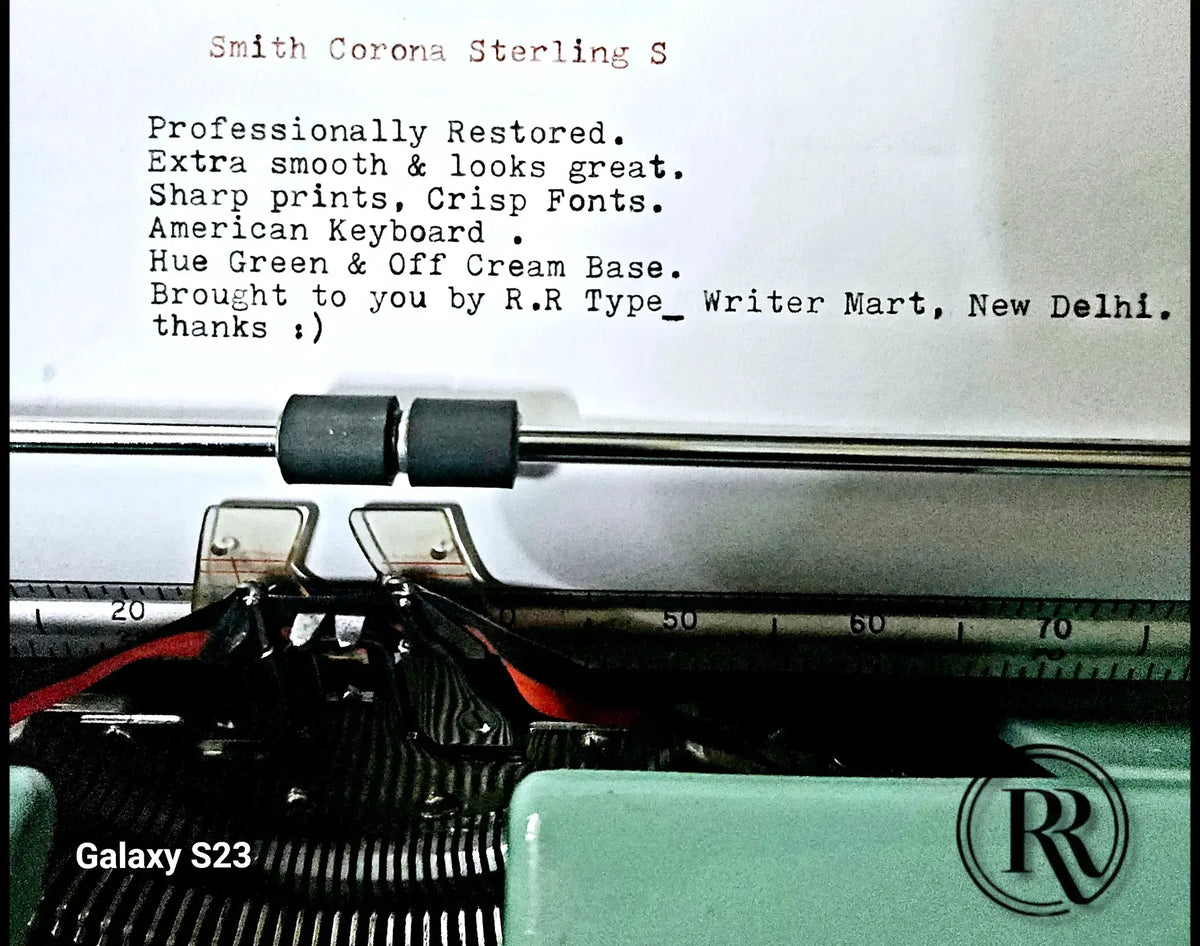 Smith Corona Sterling S
Professionally Restored.
Extra smooth & looks great.
Sharp prints, Crisp Fonts.
American Keyboard .
Hue Green & Off Cream Base.
Brought to you by R.R Type_ Writer Mart, New Delhi.
thanks :)
20 50 60 70
Galaxy S23
RR